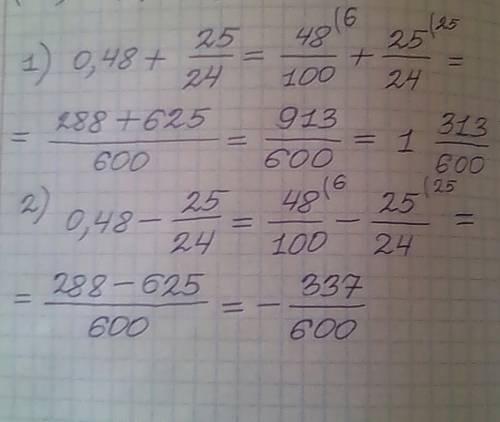 1) 0,48 + 25/24 = 48(6/100 + 25(25/24 =
= 288 + 625/600 = 913/600 = 1 313/600
2) 0,48 - 25/24 = 48(6/100 - 25(25/24 =
= 288 - 625/600 = - 337/600